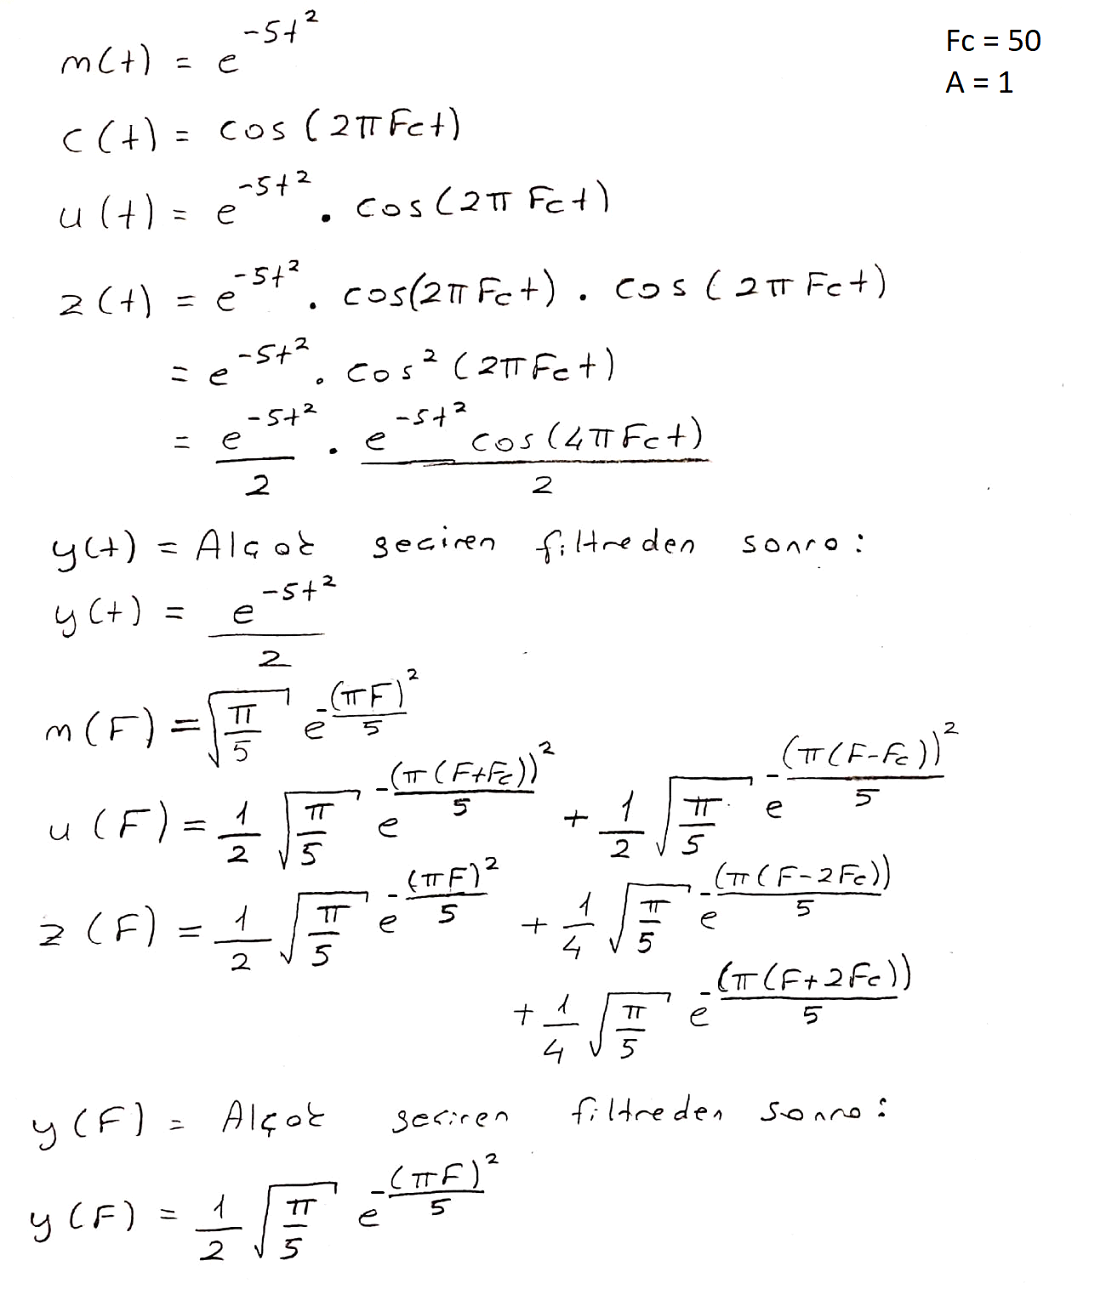 m(t) = e^{-5t^2}
Fc = 50
A = 1
c(t) = cos(2πFct)
u(t) = e^{-5t^2} . cos(2πFct)
z(t) = e^{-5t^2} . cos(2πFct) . cos(2πFct)
= e^{-5t^2} . cos^2(2πFct)
= \frac{e^{-5t^2}}{2} . \frac{e^{-5t^2} cos(4πFct)}{2}
y(t) = Alçak geçiren filtreden sonra:
y(t) = \frac{e^{-5t^2}}{2}
m(F) = \sqrt{\frac{π}{5}} e^{-\frac{(πF)^2}{5}}
u(F) = \frac{1}{2} \sqrt{\frac{π}{5}} e^{-\frac{(π(F+Fc))^2}{5}} + \frac{1}{2} \sqrt{\frac{π}{5}} e^{-\frac{(π(F-Fc))^2}{5}}
z(F) = \frac{1}{2} \sqrt{\frac{π}{5}} e^{-\frac{(πF)^2}{5}} + \frac{1}{4} \sqrt{\frac{π}{5}} e^{-\frac{(π(F-2Fc))}{5}}
+ \frac{1}{4} \sqrt{\frac{π}{5}} e^{-\frac{(π(F+2Fc))}{5}}
y(F) = Alçak geçiren filtreden sonra:
y(F) = \frac{1}{2} \sqrt{\frac{π}{5}} e^{-\frac{(πF)^2}{5}}